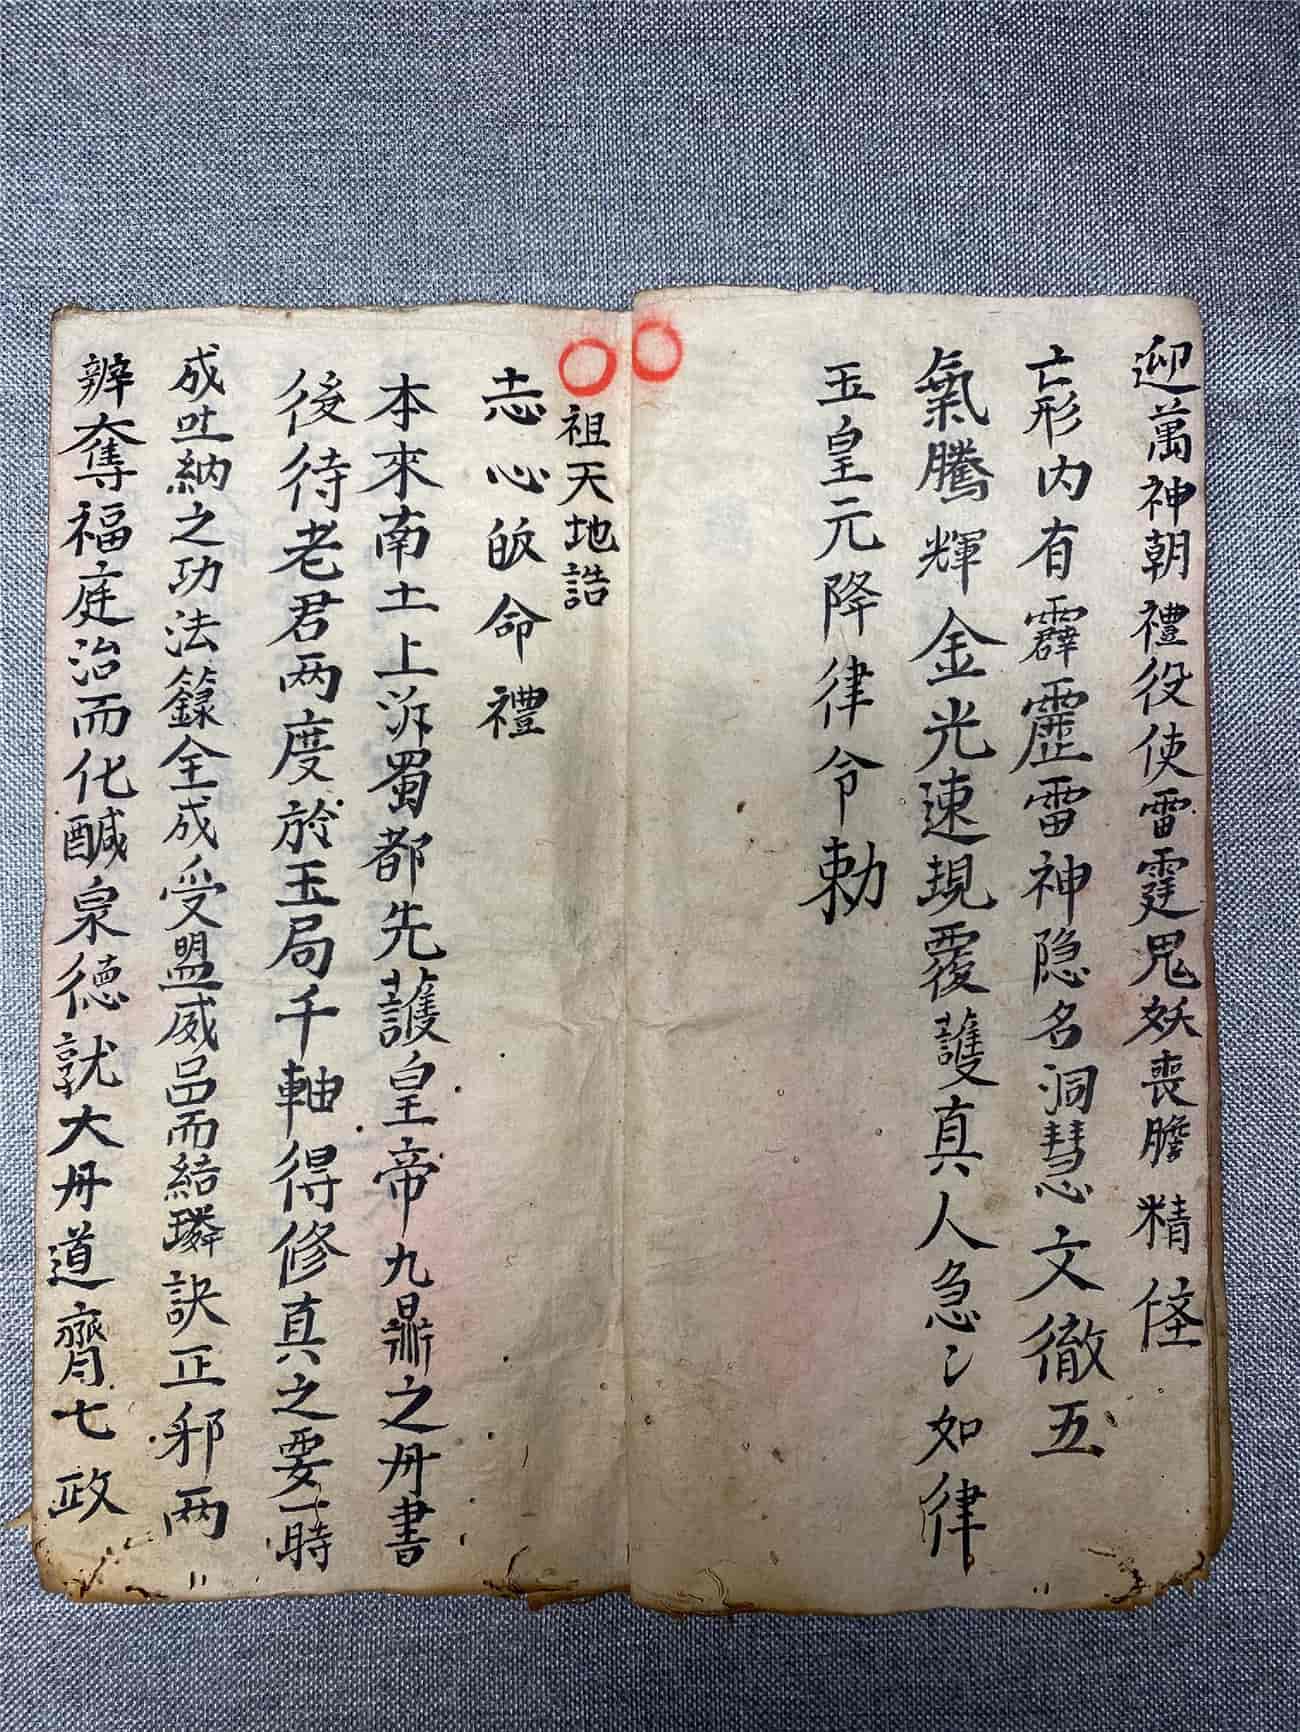 迎萬神朝禮役使雷霆鬼妖喪膽精怪
亡形内有霹靂雷神隐名洞慧文徹五
氣騰輝金光速現覆護真人急〻如律
玉皇元降律令勅
祖天地誥
志心皈命禮
本來南土上泝蜀都先護皇帝九鼎之丹書
後待老君两度於玉局千軸得修真之要一時
成吐納之功法籙全成受盟威品而結璘訣正邪两
辨奪福庭治而化醎泉德就大丹道齊七政